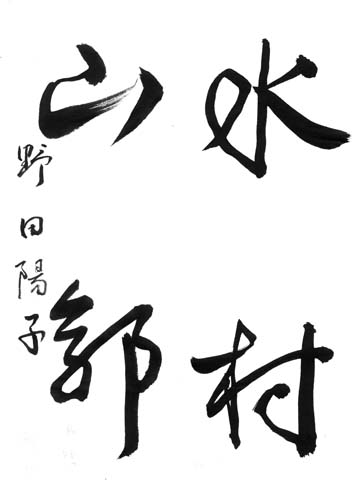 水村
山郭
野田陽子